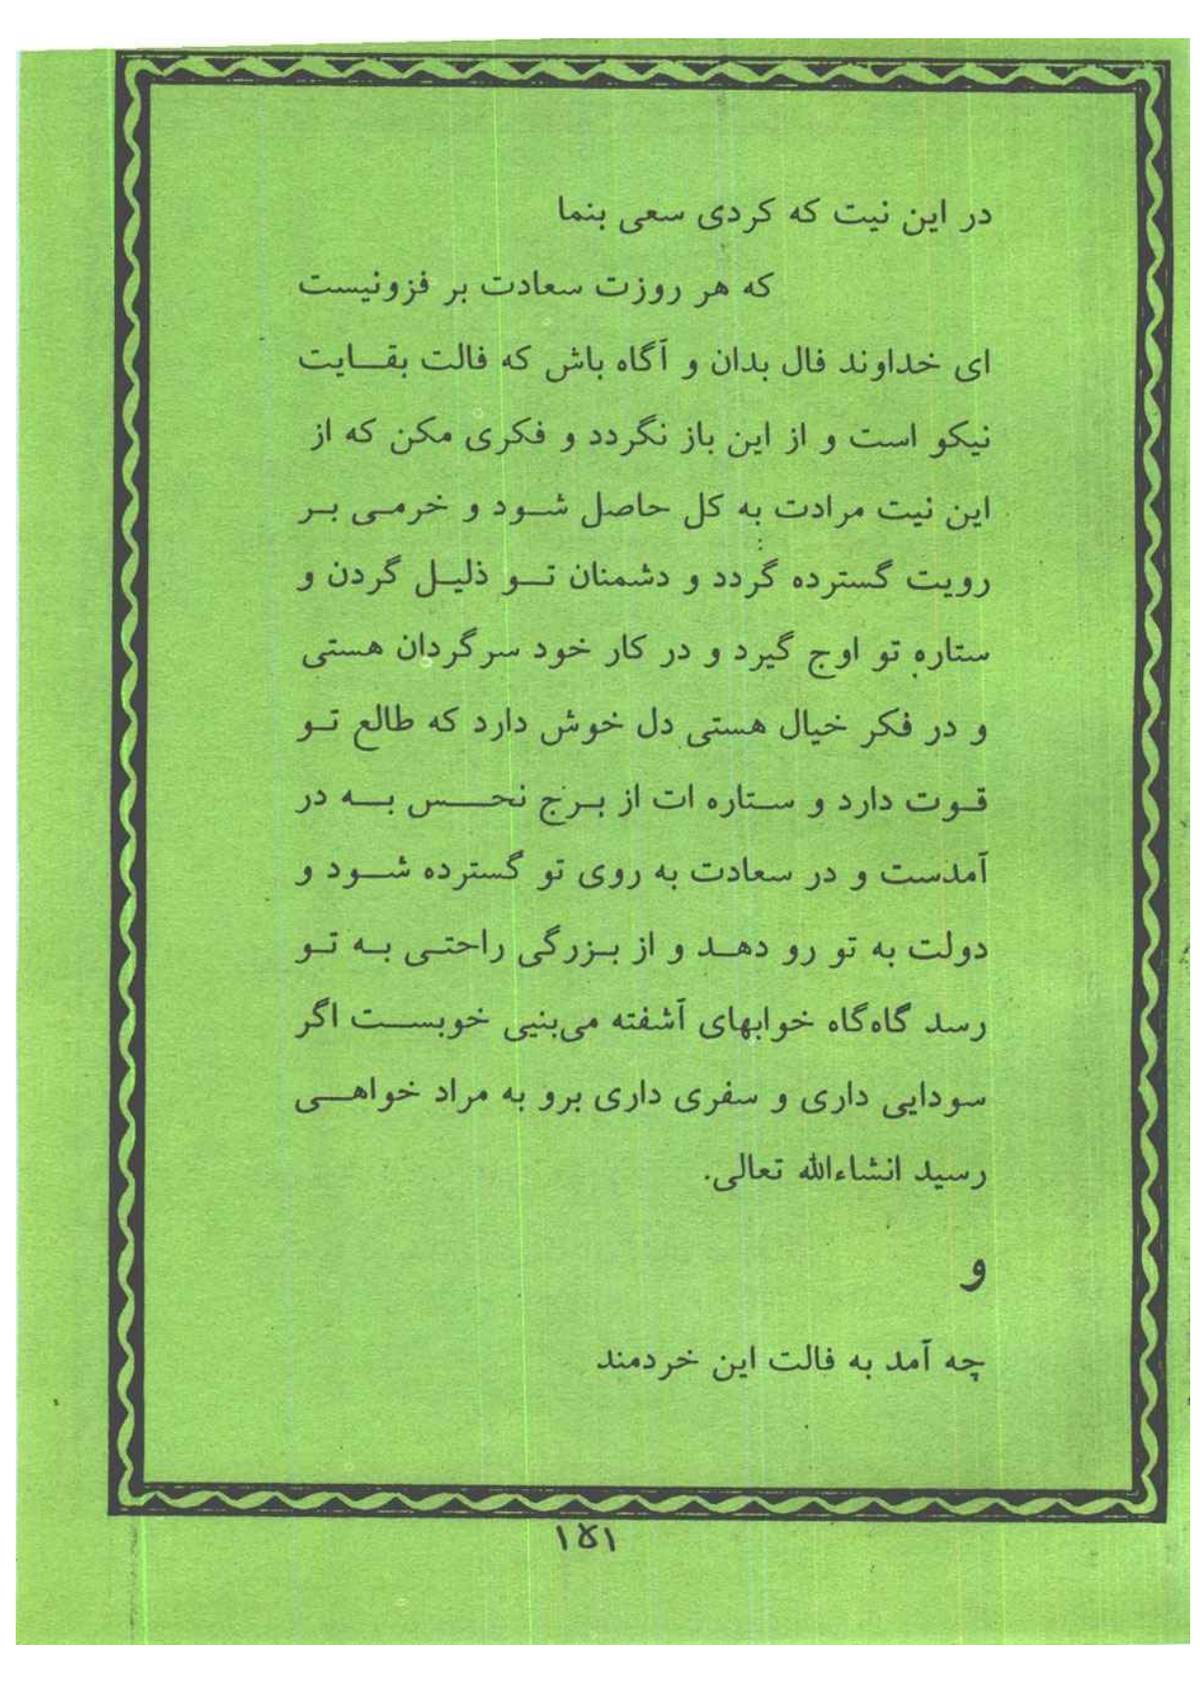 در این نیت که کردی سعی بنما
که هر روزت سعادت بر فزونیست
ای خداوند فال بدان و آگاه باش که فالت بقایت
نیکو است و از این باز نگردد و فکری مکن که از
این نیت مرادت به کل حاصل شود و خرمی بر
رویت گسترده گردد و دشمنان تو ذلیل گردن و
ستاره تو اوج گیرد و در کار خود سرگردان هستی
و در فکر خیال هستی دل خوش دارد که طالع تو
قوت دارد و ستاره ات از برج نحس به در
آمدست و در سعادت به روی تو گسترده شود و
دولت به تو رو دهد و از بزرگی راحتی به تو
رسد گاه‌گاه خوابهای آشفته می‌بنیی خوبست اگر
سودایی داری و سفری داری برو به مراد خواهی
رسید انشاءالله تعالی.
و
چه آمد به فالت این خردمند
۱۵۱